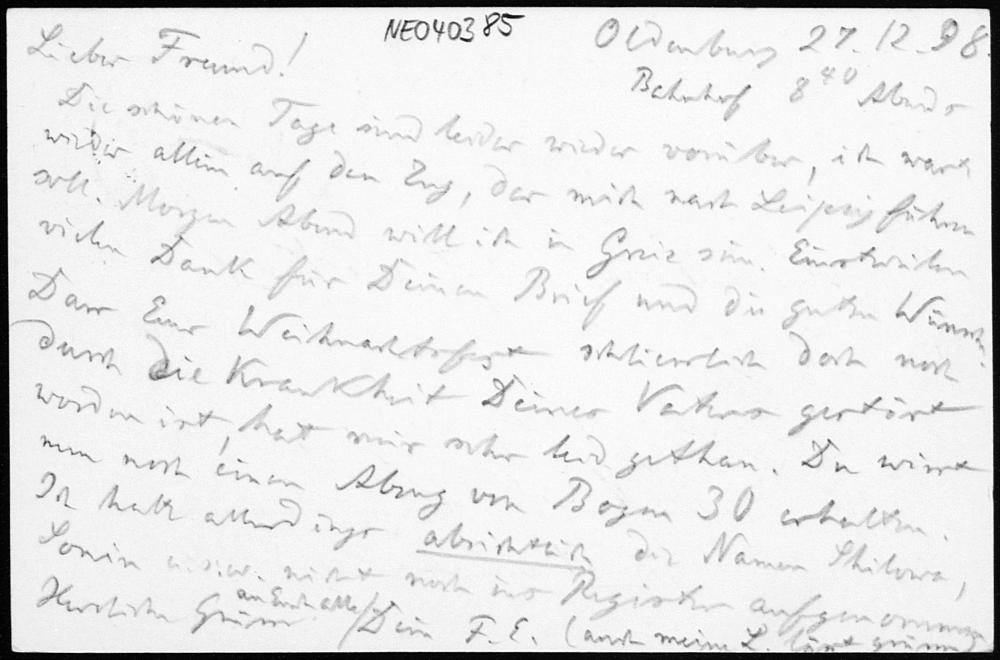 NE040385
Oldenburg 27.12.98.
Lieber Freund!
Bahnhof 8 40 Abends
Die schönen Tage sind leider wieder vorüber, ich warte
wieder allein auf den Zug, der mich nach Leipzig führen
soll. Morgen Abend will ich in Greiz sein. Einstweilen
vielen Dank für Deinen Brief und die guten Wünsche.
Dass Euer Weihnachtsfest schliesslich doch noch
durch die Krankheit Deines Vaters gestört
worden ist, hat mir sehr leid gethan. Du wirst
nun noch einen Abzug von Bogen 30 erhalten.
Ich hatte allerdings absichtlich die Namen Shilowa,
Sonin u.s.w. nicht noch ins Register aufgenommen
Herzliche Grüsse an Euch alle! Dein F. E. (auch meine L. lässt grüssen)